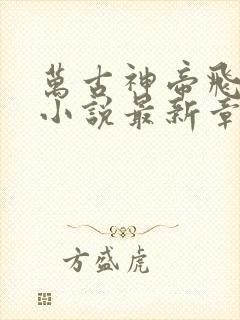 萬古神帝飛
小說最新章
方盛虎